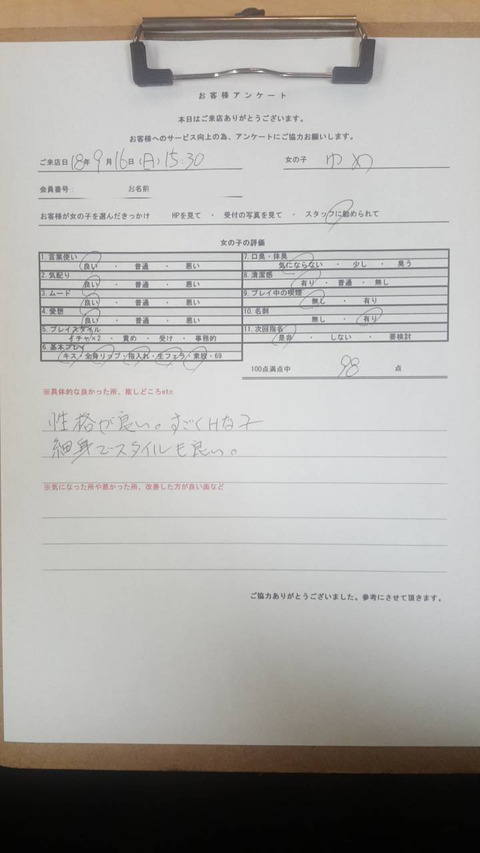 お客様アンケート
本日はご来店ありがとうございます。
お客様へのサービス向上の為、アンケートにご協力お願いします。
ご来店日 18年 9月 16日 (日) 15:30 女の子 ゆめ
会員番号: お名前
お客様が女の子を選んだきっかけ HPを見て ・ 受付の写真を見て ・ スタッフに勧められて
女の子の評価
1.言葉使い
良い ・ 普通 ・ 悪い
2.気配り
良い ・ 普通 ・ 悪い
3.ムード
良い ・ 普通 ・ 悪い
4.愛想
良い ・ 普通 ・ 悪い
5.プレイスタイル
イチャ×2 ・ 責め ・ 受け ・ 事務的
6.基本プレイ
キス・全身リップ・指入れ・生フェラ・素股・69
7.口臭・体臭
気にならない ・ 少し ・ 臭う
8.清潔感
有り ・ 普通 ・ 無し
9.プレイ中の喫煙
無し ・ 有り
10.名刺
無し ・ 有り
11.次回指名
是非 ・ しない ・ 要検討
100点満点中 98 点
※具体的な良かった所、推しどころetc
性格が良い。すごくHな子
細身でスタイルも良い。
※気になった所や悪かった所、改善した方が良い面など
ご協力ありがとうございました。参考にさせて頂きます。